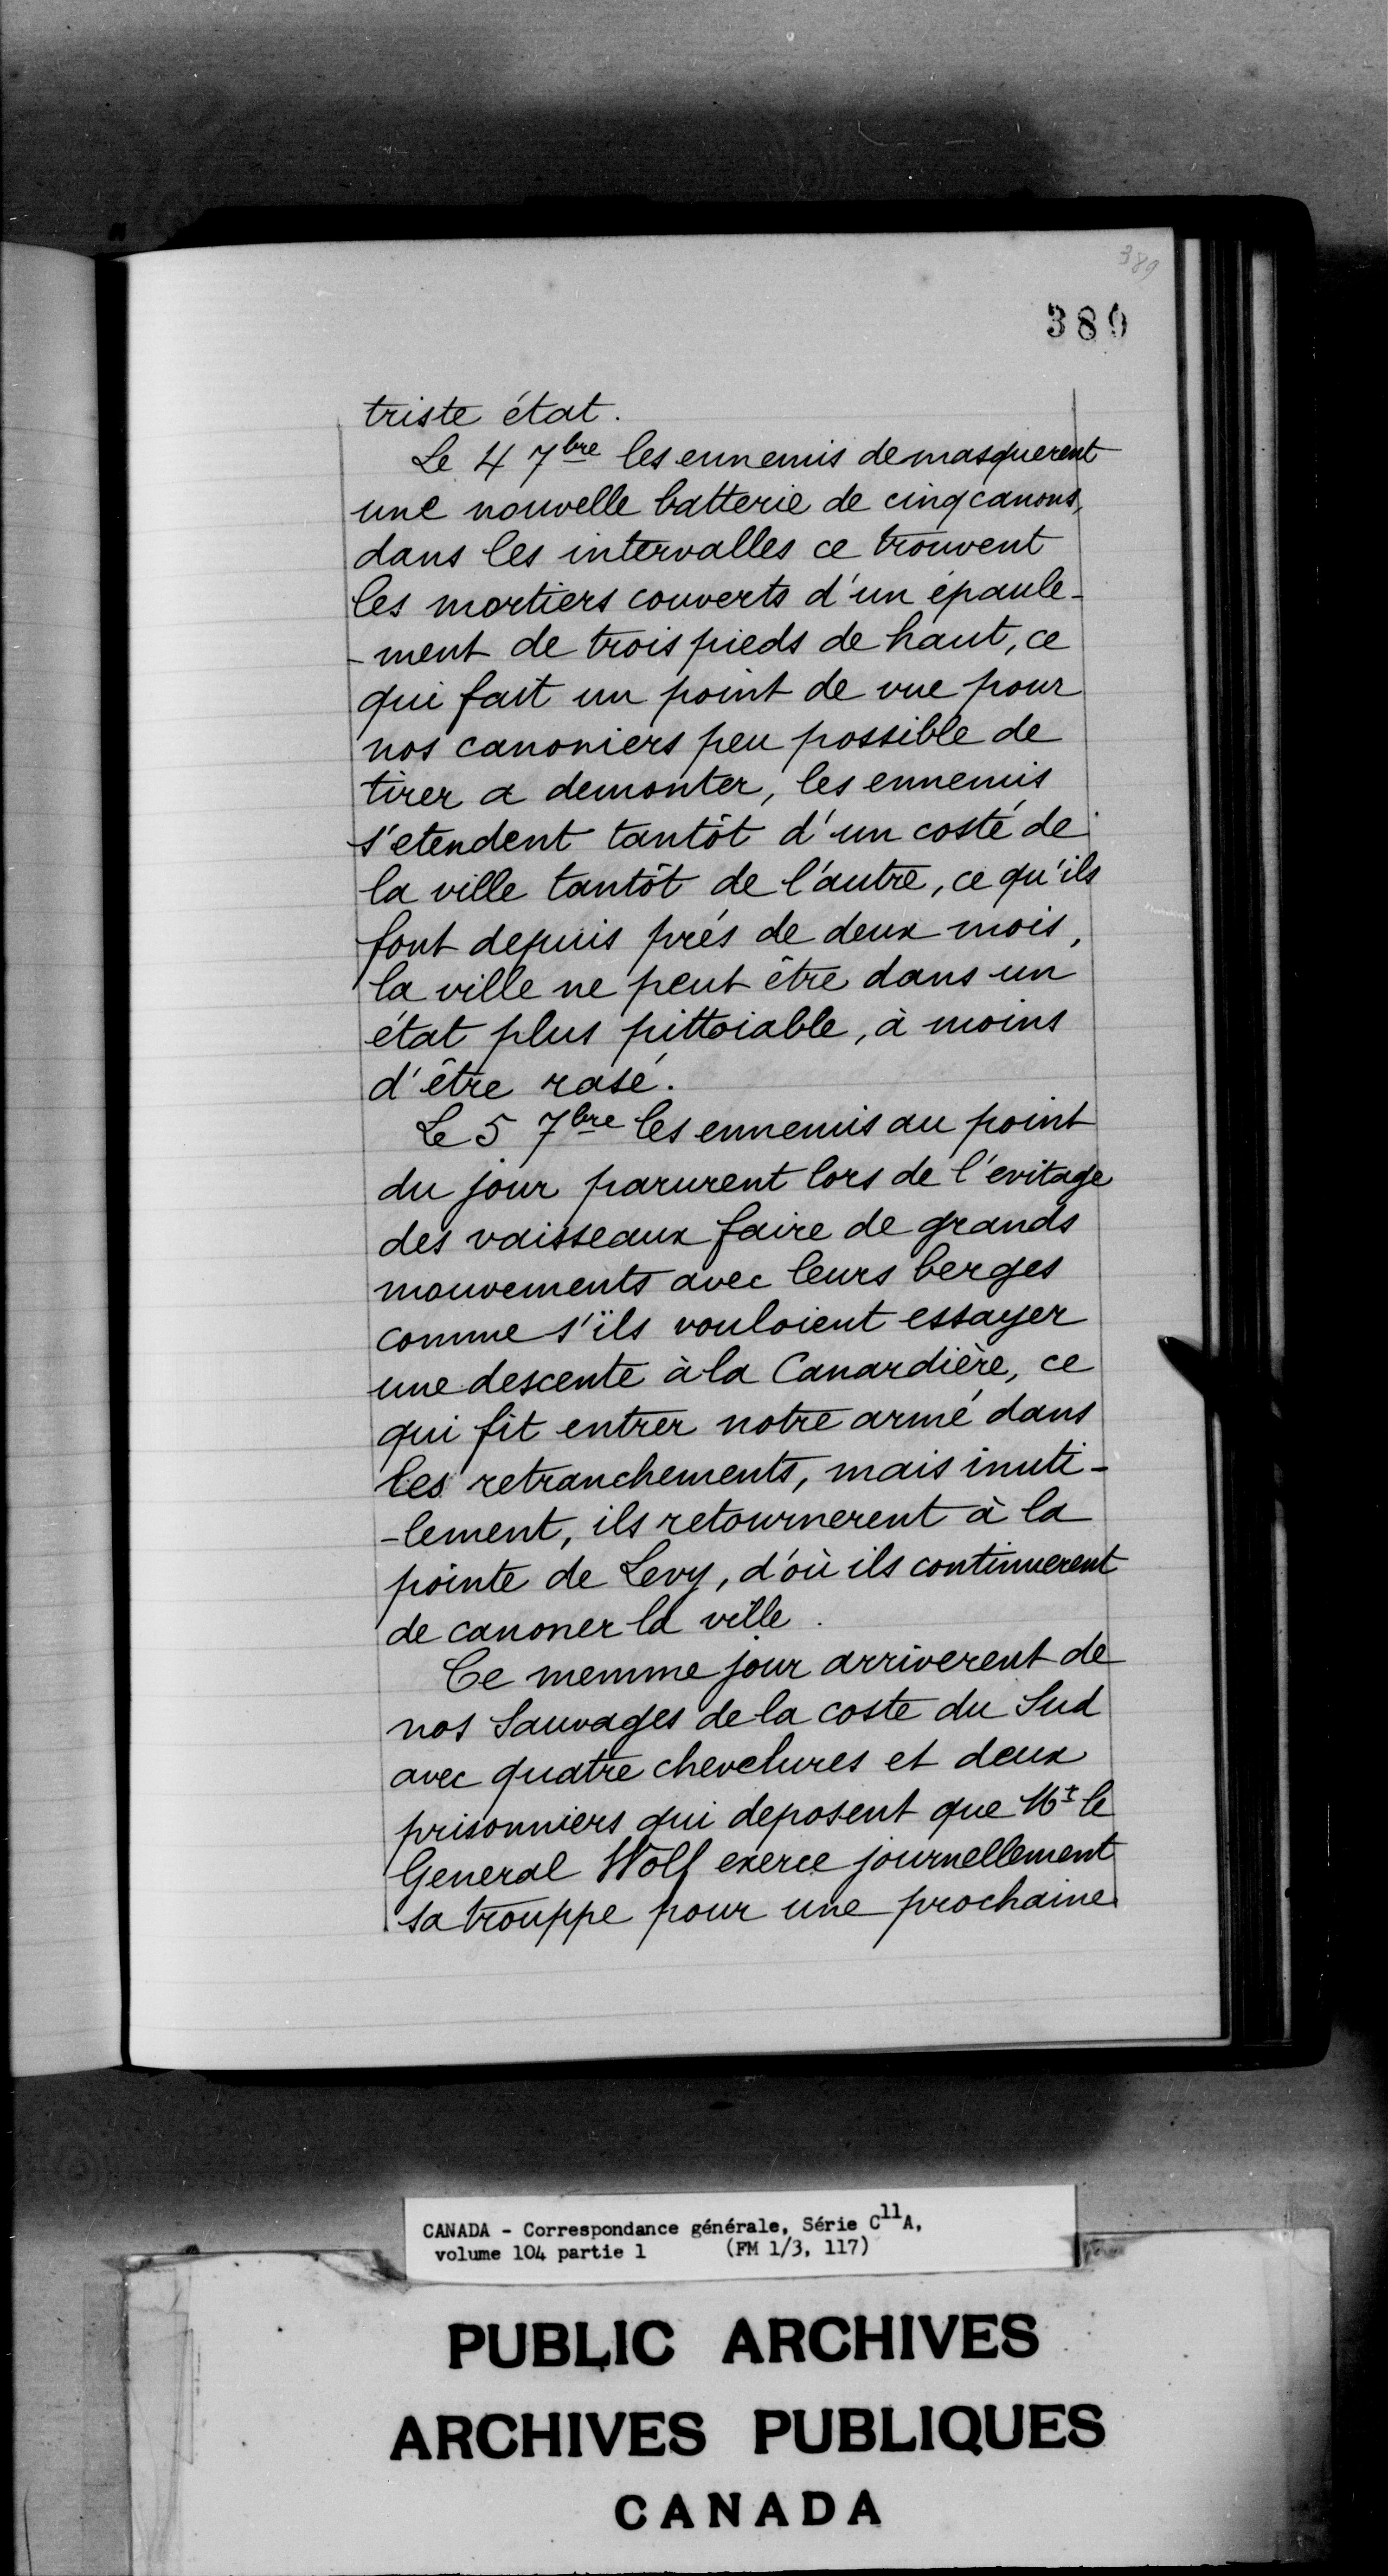 389
389
triste état.
Le 4 7bre les ennemis demasquerent
une nouvelle batterie de cinq canons,
dans les intervalles ce trouvent
les mortiers couverts d'un épaule-
-ment de trois pieds de haut, ce
qui fait un point de vue pour
nos canoniers peu possible de
tirer a demonter, les ennemis
s'etendent tantôt d'un costé de
la ville tantôt de l'autre, ce qu'ils
font depuis prés de deux mois,
la ville ne peut être dans un
état plus pittoiable, à moins
d'être rasé.
Le 5 7bre les ennemis au point
du jour parurent lors de l'evitage
des vaisseaux faire de grands
mouvements avec leurs berges
comme s'ïls vouloient essayer
une descente à la Canardière, ce
qui fit entrer notre armé dans
les retranchements, mais inuti-
-lement, ils retournerent à la
pointe de Levy, d'où ils continuerent
de canoner la ville.
Ce memme jour arriverent de
nos Sauvages de la coste du Sud
avec quatre chevelures et deux
prisonniers qui deposent que Mr le
General Wolf exerce journellement
sa trouppe pour une prochaine
CANADA - Correspondance générale, Série C11A,
volume 104 partie 1 (FM 1/3, 117)
PUBLIC ARCHIVES
ARCHIVES PUBLIQUES
CANADA